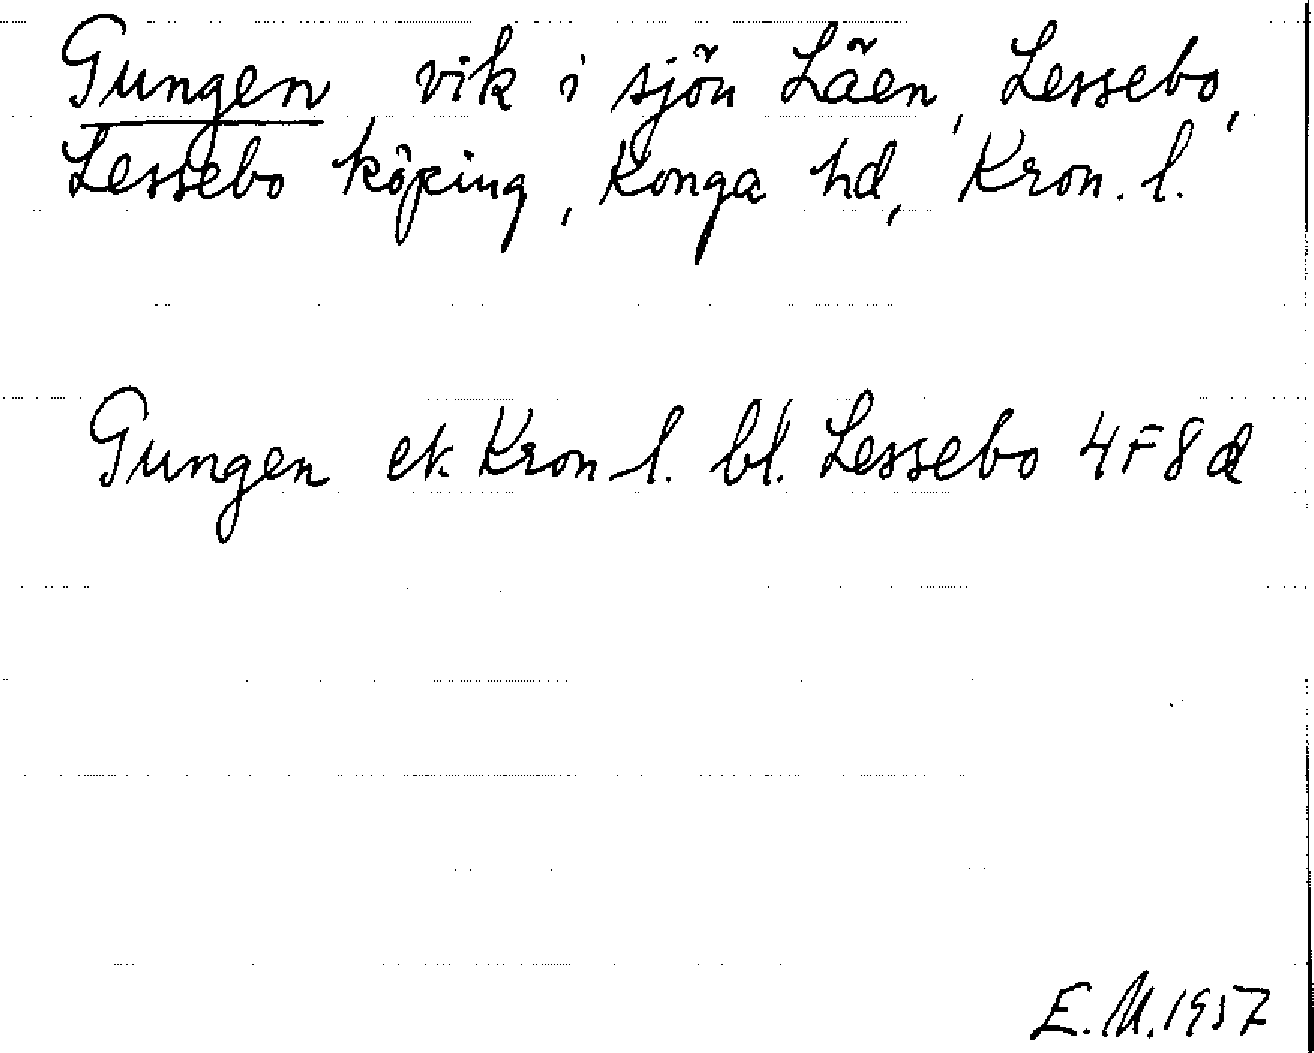 Gungen vik i sjön Läen, Lessebo,
Lessebo köping, Konga hd, Kron. l.
Gungen ek. Kron. l. bl. Lessebo 4F8d
E.M. 1957